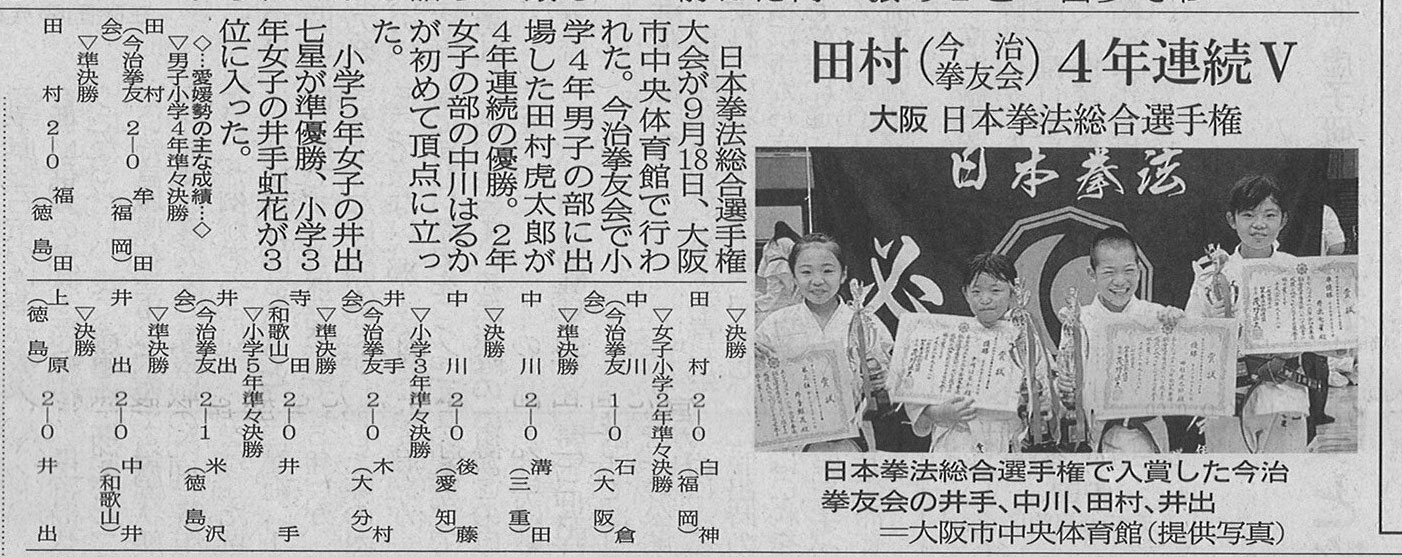 田村（今治拳友会）４年連続Ｖ
大阪 日本拳法総合選手権
日本拳法
必
賞状
賞状
賞状
賞状
日本拳法総合選手権で入賞した今治
拳友会の井手、中川、田村、井出
＝大阪市中央体育館（提供写真）
日本拳法総合選手権
大会が９月18日、大阪
市中央体育館で行わ
れた。今治拳友会で小
学４年男子の部に出
場した田村虎太郎が
４年連続の優勝。２年
女子の部の中川はるか
が初めて頂点に立っ
た。
小学５年女子の井出
七星が準優勝、小学３
年女子の井手虹花が３
位に入った。
◇…愛媛勢の主な成績…◇
▽男子小学４年準々決勝
田村（今治拳友会）２―０牟田（福岡）
▽準決勝
田村２―０福田（徳島）
▽決勝
田村２―０白神（福岡）
▽女子小学２年準々決勝
中川（今治拳友会）１―０石倉（大阪）
▽準決勝
中川２―０溝田（三重）
▽決勝
中川２―０後藤（愛知）
▽小学３年準々決勝
井手（今治拳友会）２―０木村（大分）
▽準決勝
寺田（和歌山）２―０井手
▽小学５年準々決勝
井出（今治拳友会）２―１米沢（徳島）
▽準決勝
井出２―０中井（和歌山）
▽決勝
上原（徳島）２―０井出